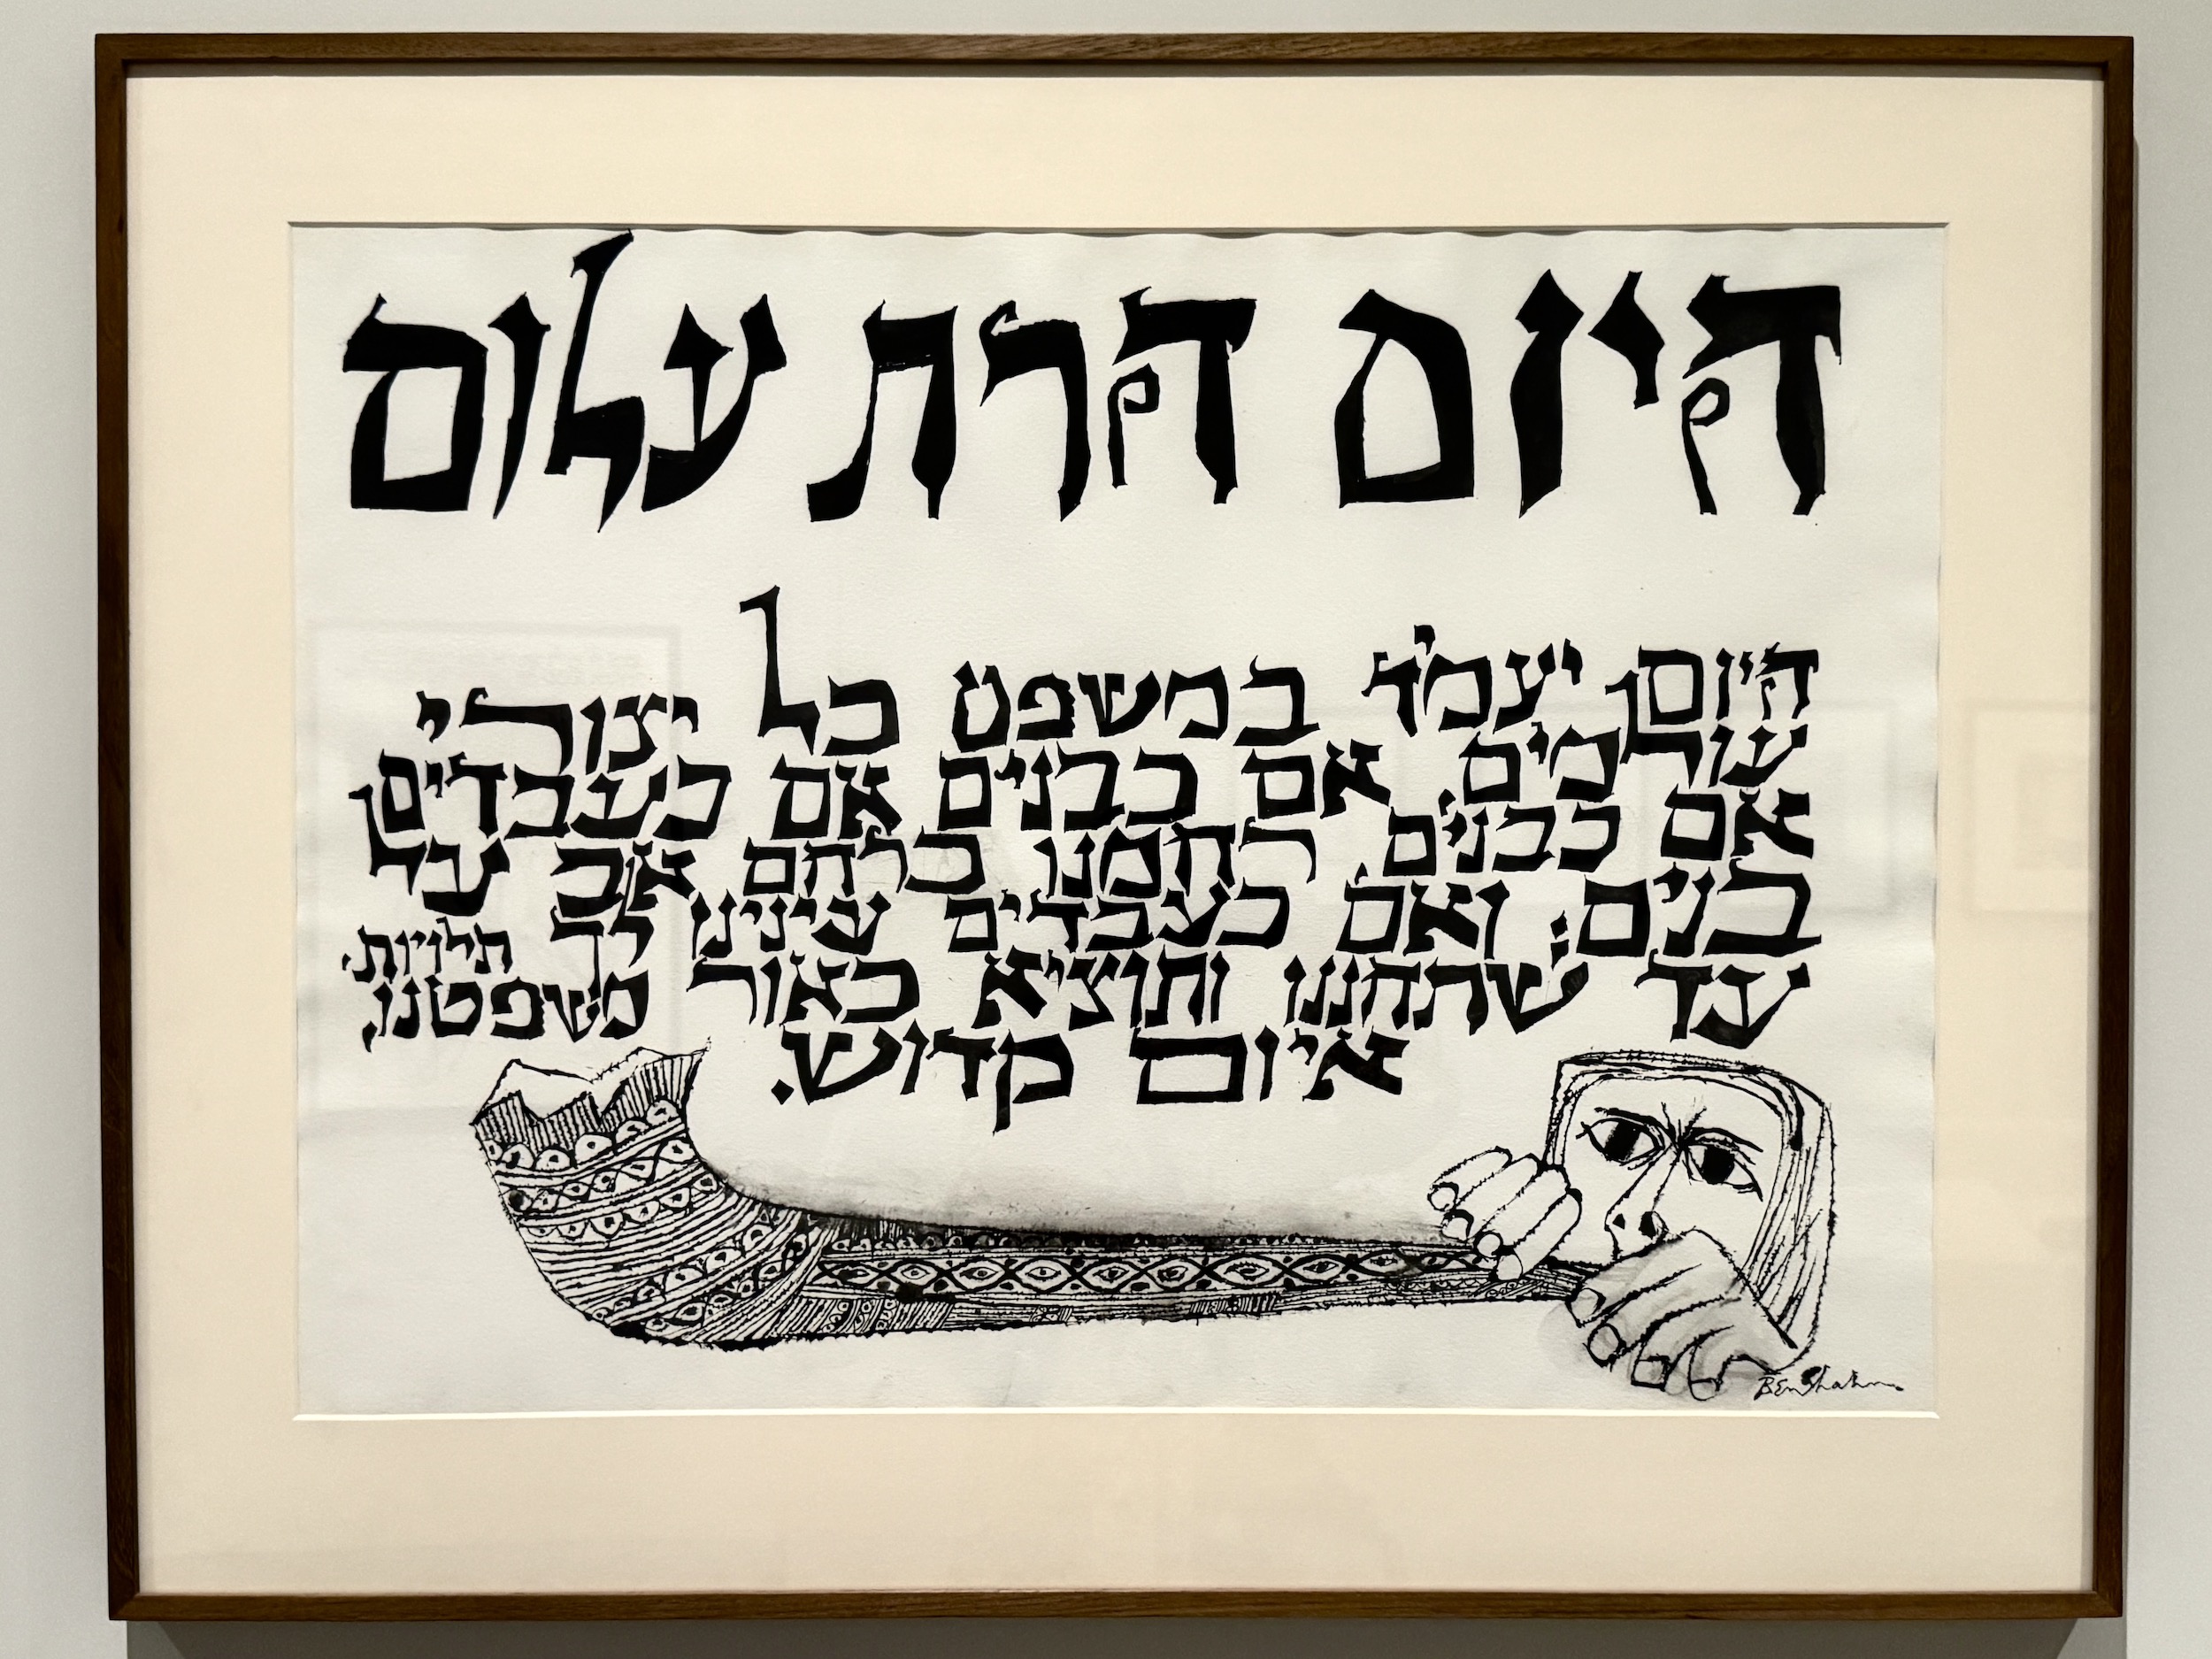 היום הרת עלום
היום יעמיד במשפט כל יצורי
עולמים, אם כבנים אם כעבדים
אם כבנים, רחמנו כרחם אב על
בנים; ואם כעבדים עינינו לך תלויות,
עד שתחננו ותוציא כאור משפטנו,
איום קדוש.
Ben Shahn